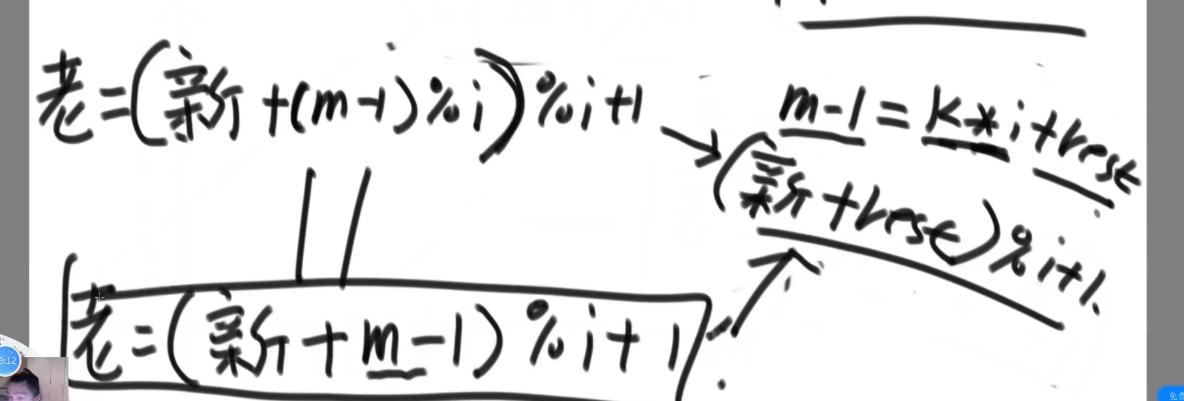 老=(新+(m-1)%i)%i+1
m-1=k*i+rest
(新+rest)%i+1.
老=(新+m-1)%i+1
9:12
免费